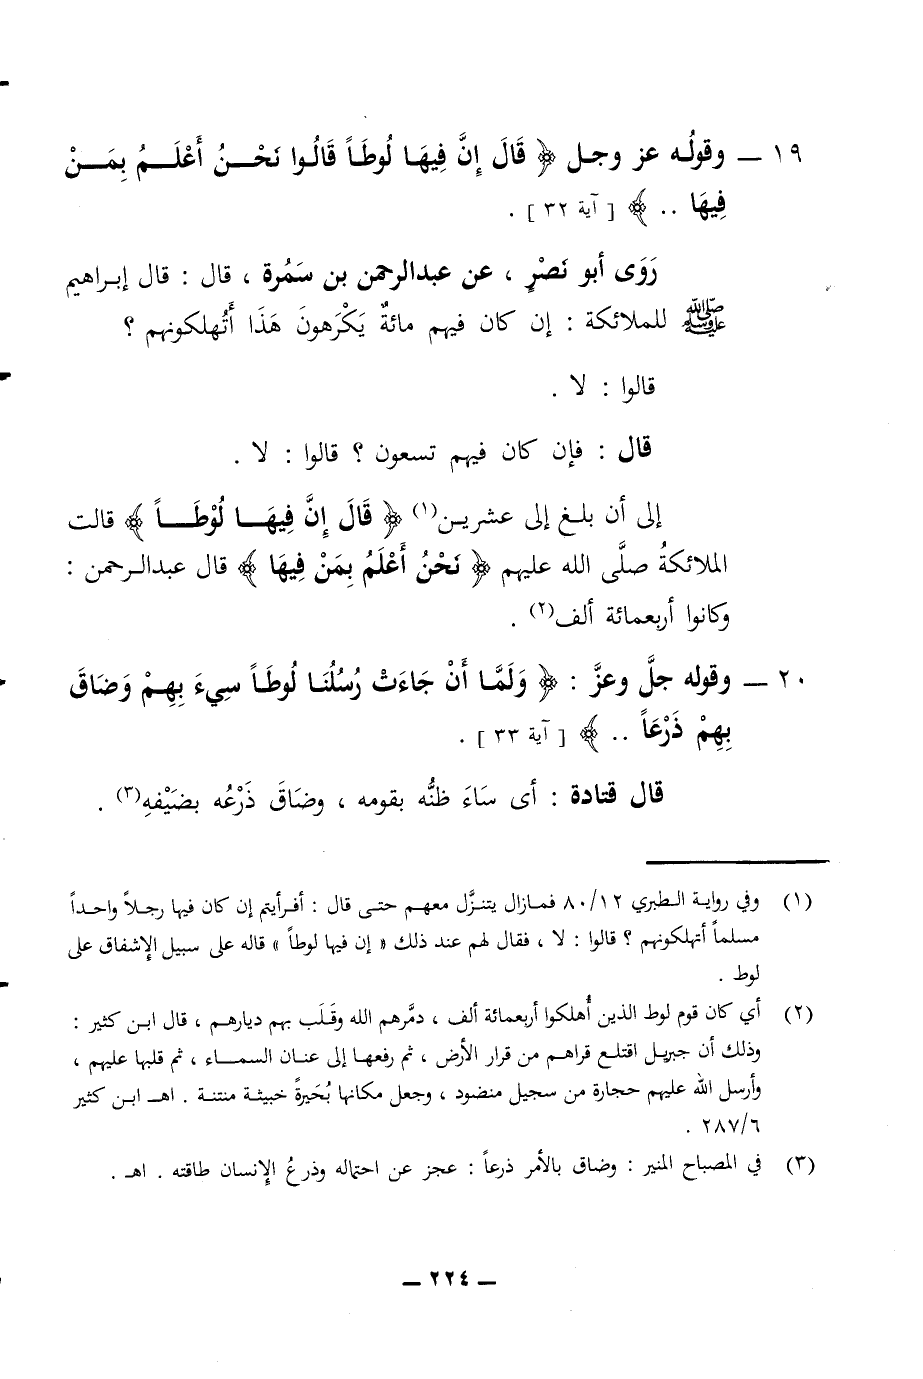 ١٩ ــ وقولُه عز وجل ﴿ قَالَ إِنَّ فِيهَا لُوطَاً قَالُوا نَحْنُ أَعْلَمُ بِمَنْ
فِيهَا .. ﴾ [ آية ٣٢ ] .
رَوَى أبو نَصْرٍ ، عن عبدالرحمن بن سَمُرة ، قال : قال إبراهيم
ﷺ للملائكة : إن كان فيهم مائةٌ يَكْرَهونَ هَذَا أَتُهلكونهم ؟
قالوا : لا .
قال : فإن كان فيهم تسعون ؟ قالوا : لا .
إلى أن بلغ إلى عشرين(١) ﴿ قَالَ إِنَّ فِيهَا لُوْطَاً ﴾ قالت
الملائكةُ صلَّى الله عليهم ﴿ نَحْنُ أَعْلَمُ بِمَنْ فِيهَا ﴾ قال عبدالرحمن :
وكانوا أربعمائة ألف(٢) .
٢٠ ــ وقوله جلَّ وعزَّ : ﴿ وَلَمَّا أَنْ جَاءَتْ رُسُلُنَا لُوطَاً سِيءَ بِهِمْ وَضَاقَ
بِهِمْ ذَرْعَاً .. ﴾ [ آية ٣٣ ] .
قال قتادة : أى سَاءَ ظنُّه بقومه ، وضَاقَ ذَرْعُه بضَيْفهِ(٣) .
(١) وفي رواية الطبري ٨٠/١٢ فمازال يتنزَّل معهم حتى قال : أفرأيتم إن كان فيها رجلاً واحداً
مسلماً أتهلكونهم ؟ قالوا : لا ، فقال لهم عند ذلك « إن فيها لوطاً » قاله على سبيل الإشفاق على
لوط .
(٢) أي كان قوم لوط الذين أُهلكوا أربعمائة ألف ، دمَّرهم الله وقَلَب بهم ديارهم ، قال ابن كثير :
وذلك أن جبريل اقتلع قراهم من قرار الأرض ، ثم رفعها إلى عنان السماء ، ثم قلبها عليهم ،
وأرسل الله عليهم حجارة من سجيل منضود ، وجعل مكانها بُحَيرةً خبيثة منتنة . اهـ ابن كثير
٢٨٧/٦ .
(٣) في المصباح المنير : وضاق بالأمر ذرعاً : عجز عن احتماله وذرعُ الإنسان طاقته . اهـ .
ــ ٢٢٤ ــ